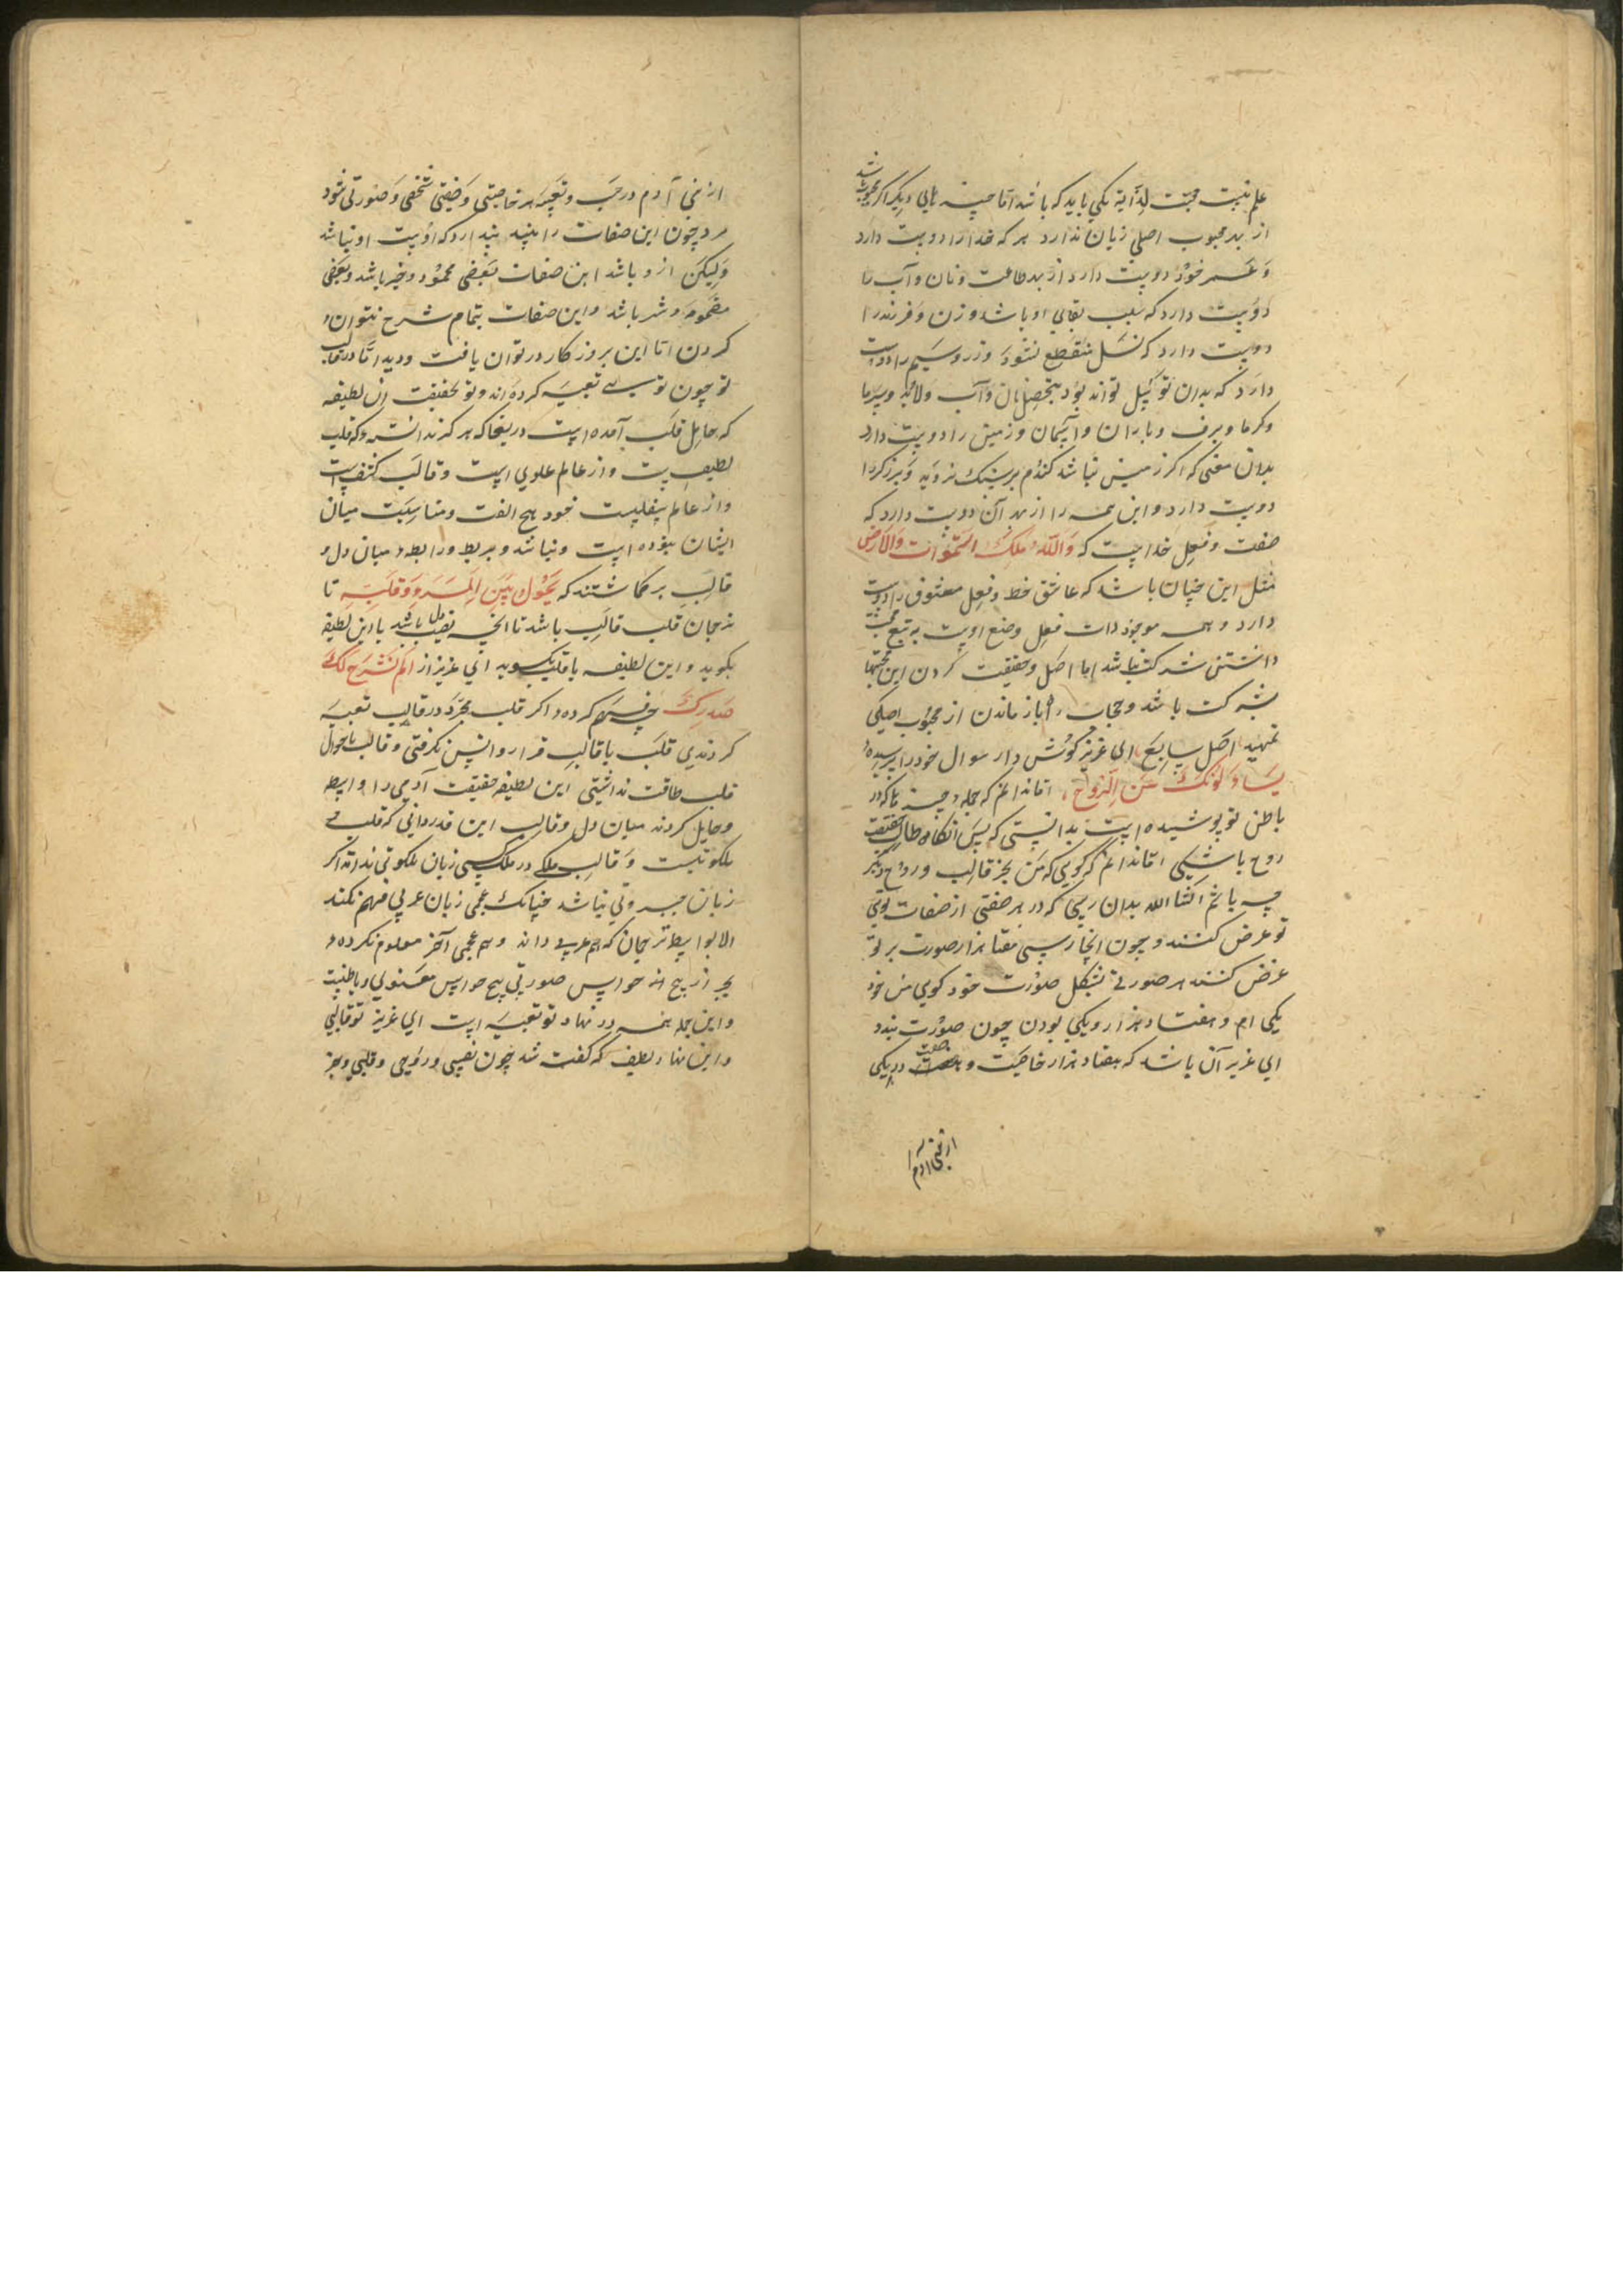 علم نیست محبت لذاته یکی باید که باشد اما چیزهای دیگر اگر محبوب باشد
از بهر محبوب اصلی زیان ندارد هر که خدا را دوست دارد
و عمر خود دوست دارد از بهر طاعت و نان و آب را
دوست دارد که سبب بقای او باشد و زن و فرزند را
دوست دارد که نسل منقطع نشود و زر و سیم را دوست
دارد که بدان توسل تواند بود بتحصیل نان و آب و لابد و سرما
و گرما و برف و باران و آسمان و زمین را دوست دارد
بدان معنی که اگر زمین نباشد گندم بر سنگ نروید و برزگر را
دوست دارد و این همه را از بهر آن دوست دارد که
صفت و فعل خداست که وَاللهُ مُلک السَّمٰوات وَالاَرضِ
مثل این چنان باشد که عاشق خط و فعل معشوق را دوست
دارد و همه موجودات فعل و صنع اوست به تبع محبت
داشتن شرکت نباشد اما اصل و حقیقت کردن این محبتها
شرکت باشد و حجاب راه باز ماندن از محبوب اصلی
تمهید اصل سابع ای عزیز گوش دار سوال خود را پرسیده
یَسأَلونَکَ عَنِ الرّوح اما ندانم که جمله چیزها که در
باطن تو پوشیده است بدانستی که پس آنگاه طالب حقیقت
روح باشی اما ندانم که گویی که من بجز قالب و روح دیگر
چه باشم انشاالله بدان رسی که در هر صفتی از صفات توی
تو عرض کنند و چون آنجا رسی هفتاد هزار صورت بر تو
عرض کنند هر صورتی بشکل صورت خود گوی من خود
یکی ام و هفتاد هزار و یکی بودن چون صورت بندد
ای عزیز آن باشد که هفتاد هزار خاصیت و صفت در یکی
از بنی آدم
از بنی آدم در حب و تعبیه هر خاصیتی و صفتی شخصی و صورتی شود
مرد چون این صفات را بیند پندارد که اوست او نباشد
وَلیکن ازو باشد این صفات بعضی محمود و خیر باشد و بعضی
مذموم و شر باشد و این صفات بتمام شرح نتوان
کردن اما این بروزگار در توان یافت و دید اما در قالب
تو چون توسی تعبیه کرده اند و تو بحقیقت آن لطیفه
که حامل قلب آمده است دریغا که هرگز ندانسته که قلب
لطیف است و از عالم علوی است و قالب کثیف است
و از عالم سفلیست خود هیچ الفت و مناسبت میان
ایشان نبوده است و نباشد و بربط و رابطه میان دل و
قالب برگماشتند که یَحُولُ بَینَ المَرءِ وَقَلبِهِ تا
ترجمان قلب قالب باشد تا آنچه نصیب دل باشد با این لطیفه
بگوید و این لطیفه با قالب گوید ای عزیز از اَلَم نَشرَح لَکَ
صَدرَکَ چه فهم کرده اگر قلب مجرد در قالب تعبیه
کردندی قلب با قالب قرار و انس نگرفتی و قالب با احوال
قلب طاقت نداشتی این لطیفه حقیقت آدمی را واسطه
و حایل کردند میان دل و قالب این قدر دانی که قلب
ملکوتیست و قالب ملکی در ملک کسی زبان ملکوتی نداند اگر
زبان جبروتی نباشد چنانک عجمی زبان عربی فهم نکند
الا بواسطه ترجمان که هم عربی داند و هم عجمی آخر معلوم نکرده
بجز از پنج حواس صورتی پنج حواس معنوی و باطنیست
و این جمله همه در نهاد تو تعبیه است ای عزیز تو قالبی
و این نهاد لطیف که گفت شد چون نفسی و روحی و قلبی و بجز